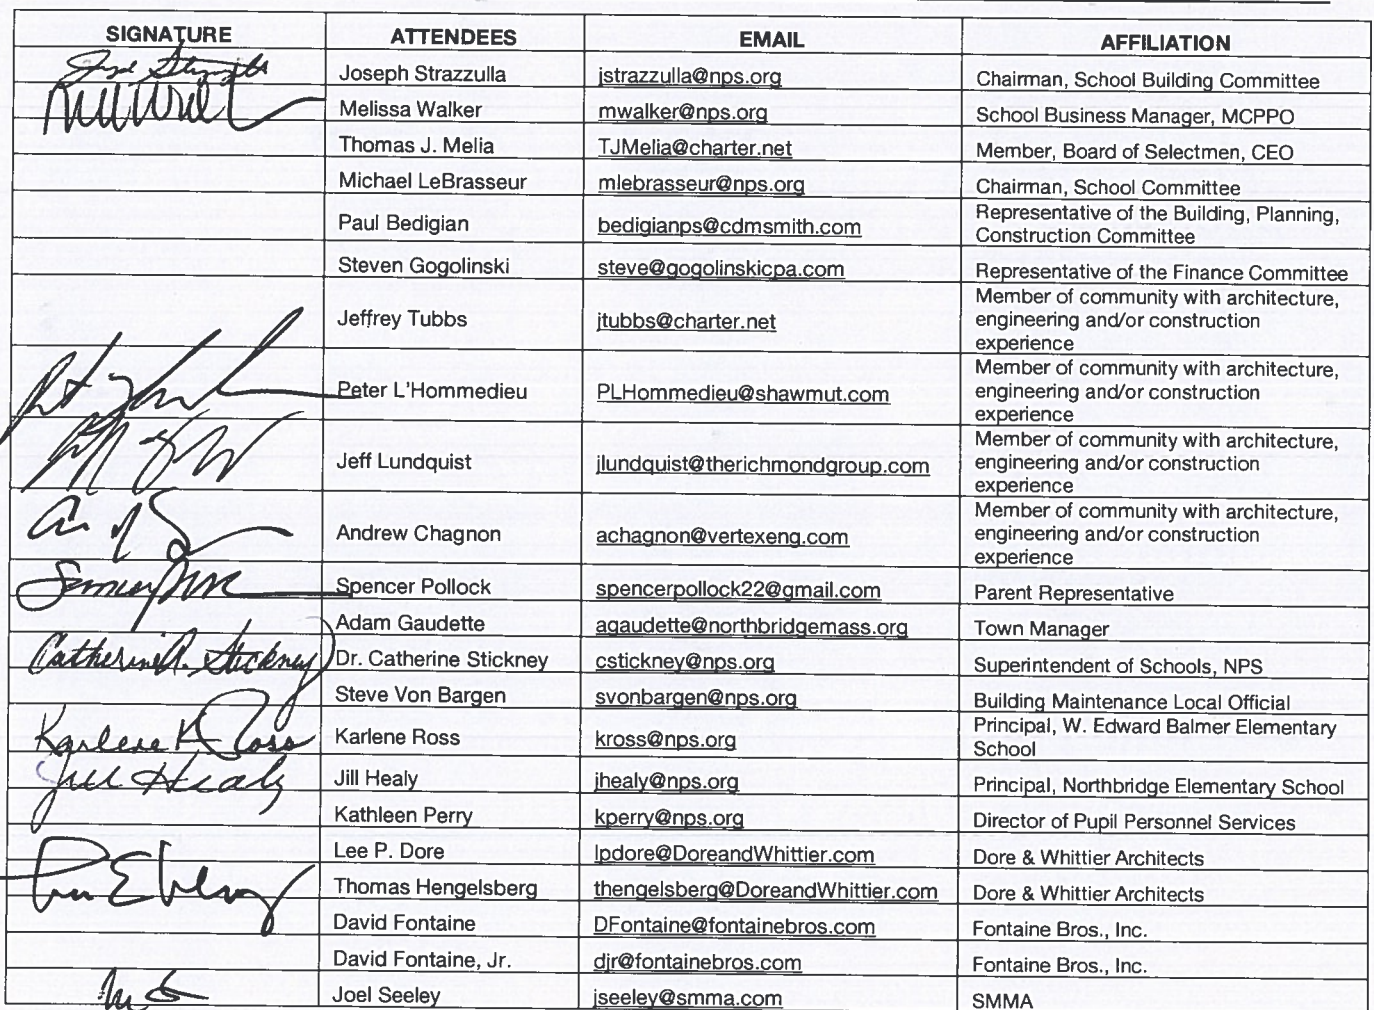 SIGNATURE ATTENDEES EMAIL AFFILIATION
Joseph Strazzulla jstrazzulla@nps.org Chairman, School Building Committee
Melissa Walker mwalker@nps.org School Business Manager, MCPPO
Thomas J. Melia TJMelia@charter.net Member, Board of Selectmen, CEO
Michael LeBrasseur mlebrasseur@nps.org Chairman, School Committee
Paul Bedigian bedigianps@cdmsmith.com Representative of the Building, Planning,
Construction Committee
Steven Gogolinski steve@gogolinskicpa.com Representative of the Finance Committee
Jeffrey Tubbs jtubbs@charter.net Member of community with architecture,
engineering and/or construction
experience
Peter L'Hommedieu PLHommedieu@shawmut.com Member of community with architecture,
engineering and/or construction
experience
Jeff Lundquist jlundquist@therichmondgroup.com Member of community with architecture,
engineering and/or construction
experience
Andrew Chagnon achagnon@vertexeng.com Member of community with architecture,
engineering and/or construction
experience
Spencer Pollock spencerpollock22@gmail.com Parent Representative
Adam Gaudette agaudette@northbridgemass.org Town Manager
Catherine A. Stickney Dr. Catherine Stickney cstickney@nps.org Superintendent of Schools, NPS
Steve Von Bargen svonbargen@nps.org Building Maintenance Local Official
Karlene K. Ross Karlene Ross kross@nps.org Principal, W. Edward Balmer Elementary
School
Jill Healy Jill Healy jhealy@nps.org Principal, Northbridge Elementary School
Kathleen Perry kperry@nps.org Director of Pupil Personnel Services
Lee P. Dore lpdore@DoreandWhittier.com Dore & Whittier Architects
Thomas Hengelsberg thengelsberg@DoreandWhittier.com Dore & Whittier Architects
David Fontaine DFontaine@fontainebros.com Fontaine Bros., Inc.
David Fontaine, Jr. djr@fontainebros.com Fontaine Bros., Inc.
Joel Seeley jseeley@smma.com SMMA